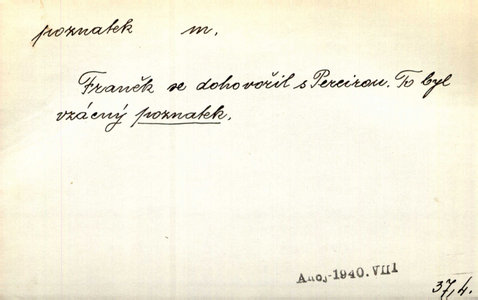 poznatek m.
Franěk se dohovořil s Pereirou. To byl
vzácný poznatek.
Ahoj-1940.VIII
37,4.